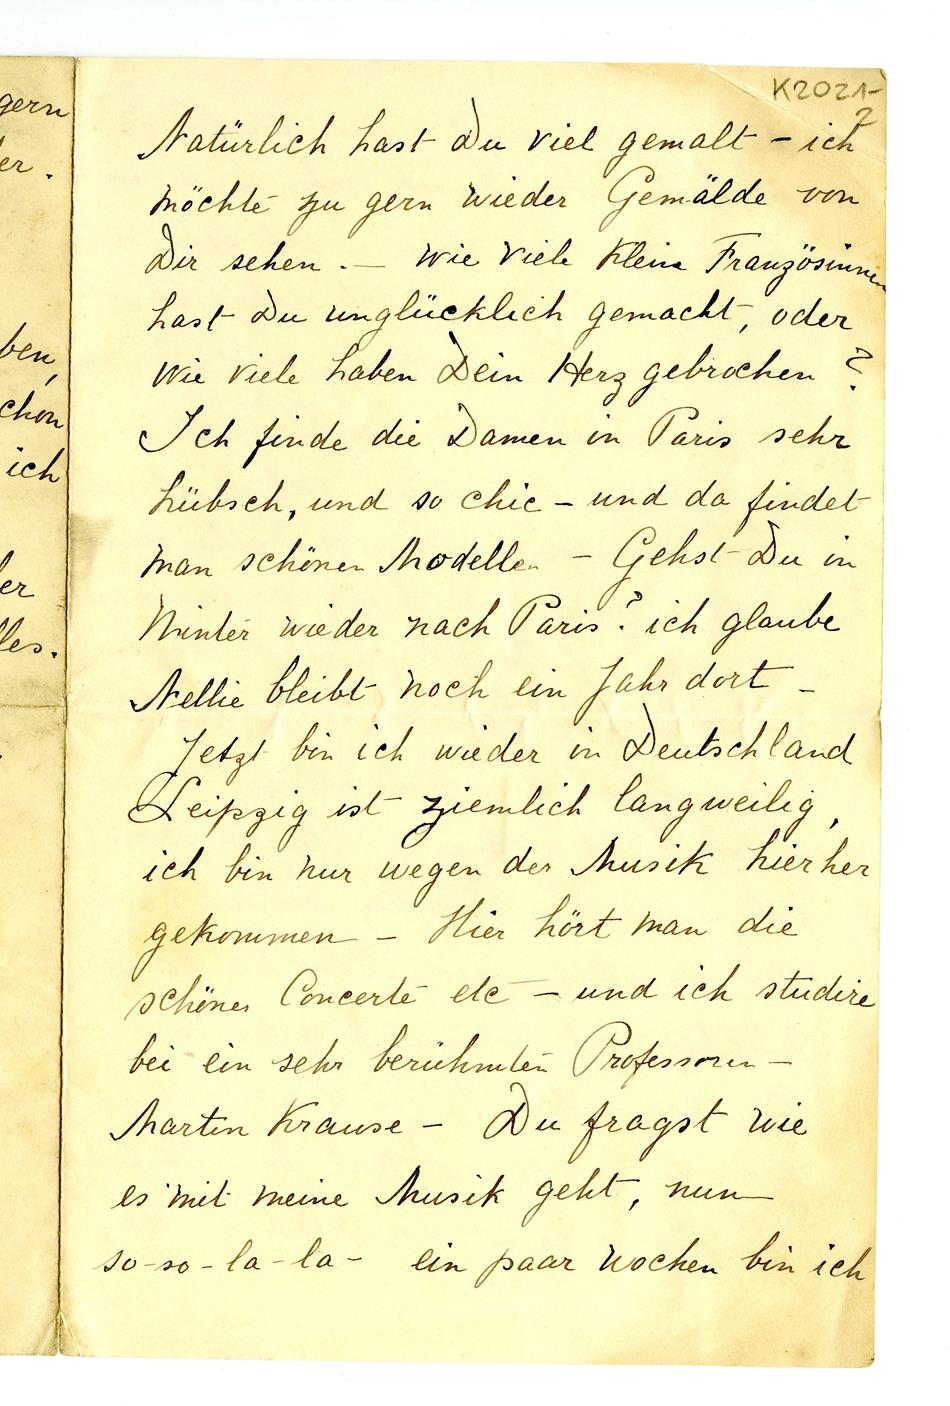 gern
er.
ben,
chon
ich
er
les.
K2021-
2
Natürlich hast Du viel gemalt – ich
möchte zu gern wieder Gemälde von
Dir sehen. — Wie viele kleine Französinnen
hast Du unglücklich gemacht, oder
wie viele haben Dein Herz gebrochen?
Ich finde die Damen in Paris sehr
hübsch, und so chic – und da findet
man schönen Modellen – Gehst Du in
Winter wieder nach Paris? ich glaube
Nellie bleibt noch ein Jahr dort –
Jetzt bin ich wieder in Deutschland
Leipzig ist ziemlich langweilig,
ich bin nur wegen der Musik hierher
gekommen – Hier hört man die
schönes Concerte etc – und ich studire
bei ein sehr berühmten Professoren –
Martin Krause – Du fragst wie
es mit meine Musik geht, nun—
so-so-la-la- ein paar Wochen bin ich